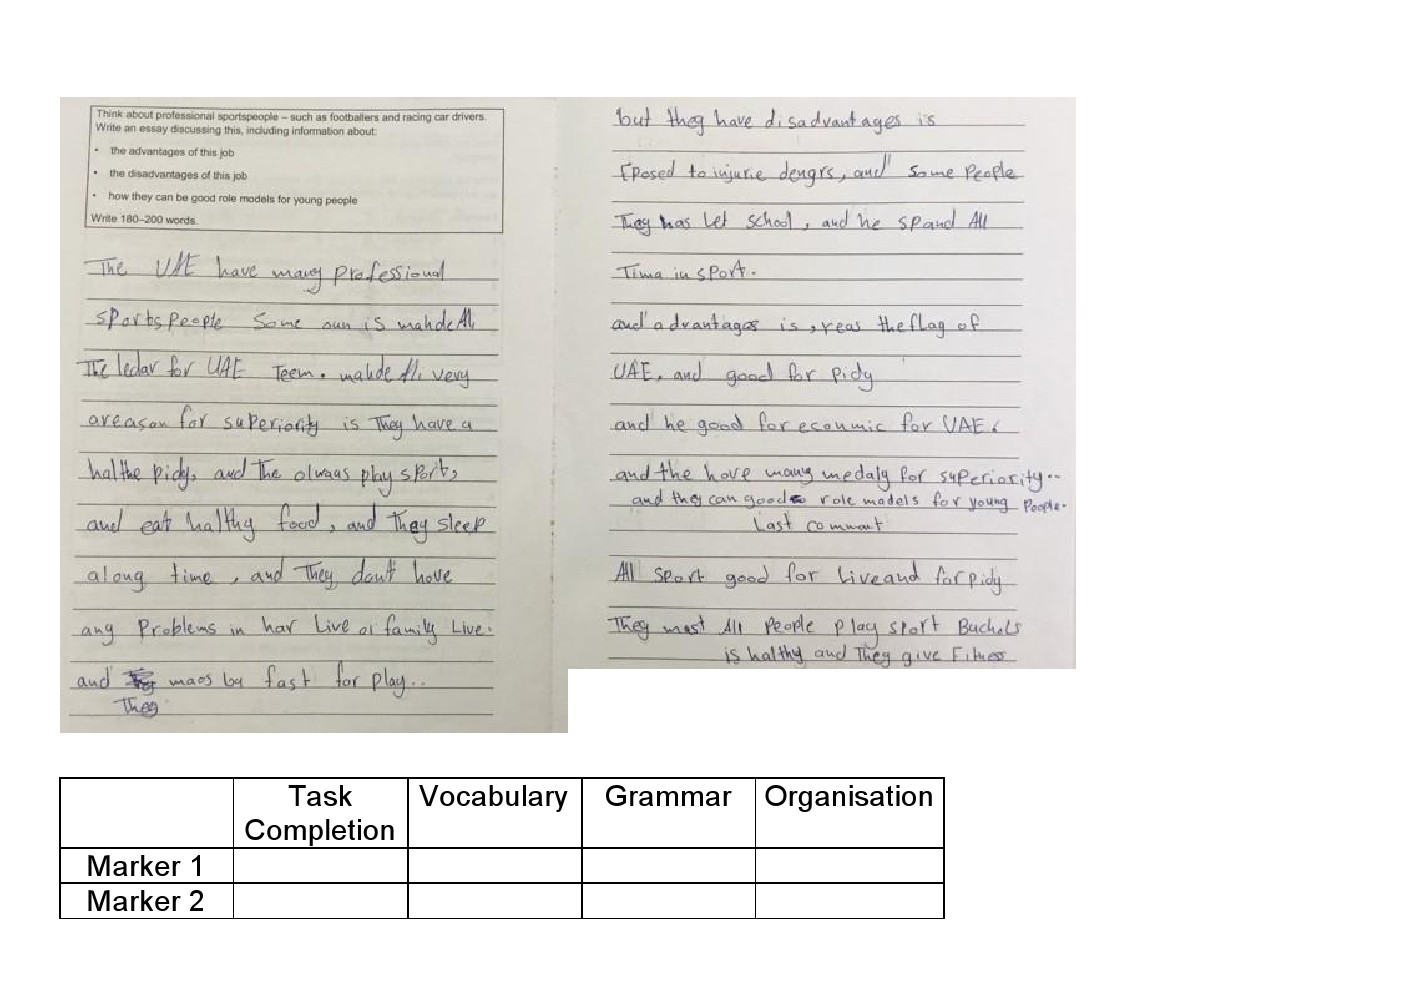 Think about professional sportspeople – such as footballers and racing car drivers.
Write an essay discussing this, including information about:
• the advantages of this job
• the disadvantages of this job
• how they can be good role models for young people
Write 180–200 words.
The UAE have many professional
sportspeople Some oun is mahde Ali
The ledar for UAE Teem. mahde Ali very
areason for superiority is They have a
halthe pidy, and The olways play sports,
and eat halthy food, and They sleep
along time, and They don't have
any Problems in har Live of family Live.
and maos by fast for play..
They
but they have disadvantages is
Eposed to injurie dengrs, and Some People
They has let school, and he spand All
Time in sport.
and advantages is, reas the flag of
UAE, and good for pidy
and he good for econmic for UAE,
and the have many medaly for superiority..
and they can good role models for young people.
Last commant
All sport good for Live and for pidy
They mast All People play sport
is halthy and They give Fitness
Task Completion Vocabulary Grammar Organisation
Marker 1
Marker 2